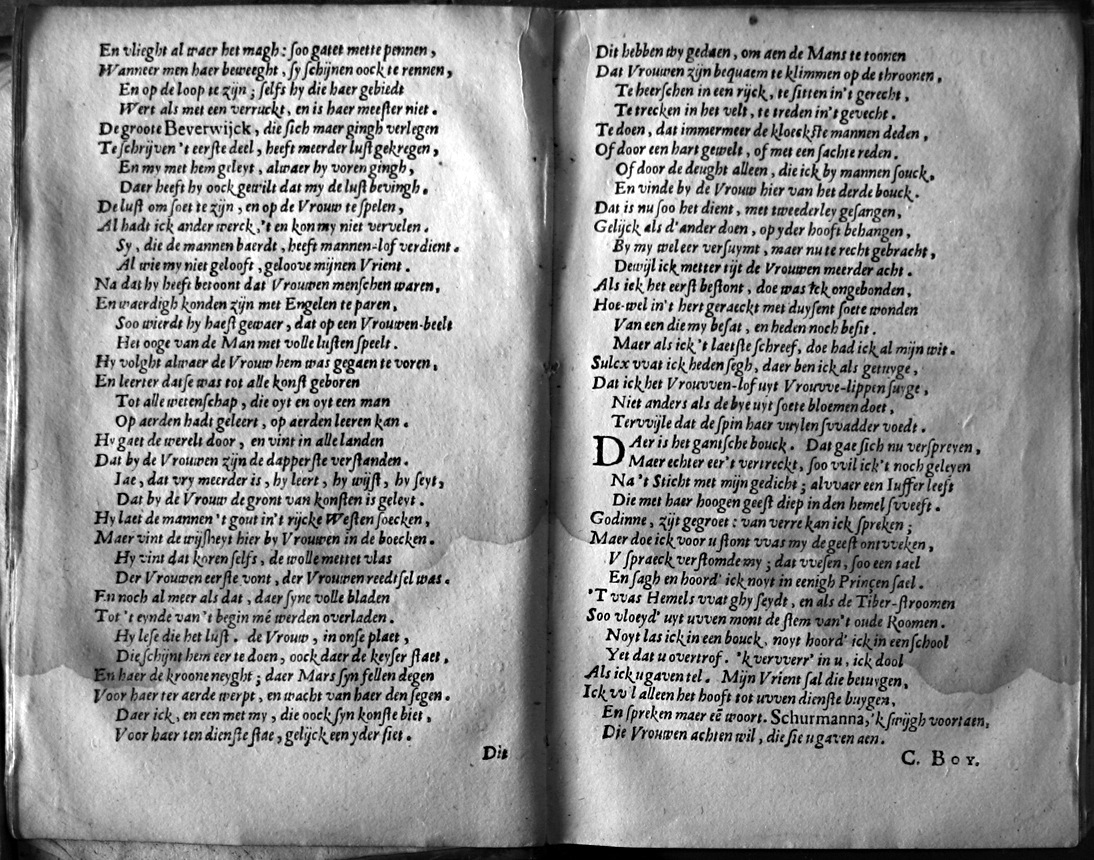 En vlieght al waer het magh: soo gatet mette pennen,
Wanneer men haer beweeght, sy schijnen oock te rennen,
En op de loop te zijn; selfs hy die haer gebiedt
Wert als met een verruckt, en is haer meester niet.
De groote Beverwijck, die sich maer gingh verlegen
Te schrijven 't eerste deel, heeft meerder lust gekregen,
En my met hem geleyt, alwaer hy voren gingh,
Daer heeft hy oock gewilt dat my de lust bevingh.
De lust om soet te zijn, en op de Vrouw te spelen,
Al hadt ick ander werck, 't en kon my niet vervelen.
Sy, die de mannen baerdt, heeft mannen-lof verdient.
Al wie my niet gelooft, geloove mijnen Vrient.
Na dat hy heeft betoont dat Vrouwen menschen waren,
En waerdigh konden zijn met Engelen te paren,
Soo wierdt hy haest gewaer, dat op een Vrouwen-beelt
Het ooge van de Man met volle lusten speelt.
Hy volght alwaer de Vrouw hem was gegaen te voren,
En leerter datse was tot alle konst geboren
Tot alle wetenschap, die oyt en oyt een man
Op aerden hadt geleert, op aerden leeren kan.
Hy gaet de werelt door, en vint in alle landen
Dat by de Vrouwen zijn de dapperste verstanden.
Jae, dat vry meerder is, hy leert, hy wijst, hy seyt,
Dat by de Vrouw de gront van konsten is geleyt.
Hy laet de mannen 't gout in't rijcke Westen soecken,
Maer vint de wijsheyt hier by Vrouwen in de boecken.
Hy vint dat koren selfs, de wolle mettet vlas
Der Vrouwen eerste vont, der Vrouwen reedtsel was.
En noch al meer als dat, daer syne volle bladen
Tot 't eynde van 't begin mé werden overladen.
Hy lese die het lust. de Vrouw, in onse plaet,
Die schijnt hem eer te doen, oock daer de keyser staet,
En haer de kroone neyght; daer Mars syn fellen degen
Voor haer ter aerde werpt, en wacht van haer den segen.
Daer ick, en een met my, die oock syn konste biet,
Voor haer ten dienste stae, gelijck een yder siet.
Dit
Dit hebben wy gedaen, om aen de Mans te toonen
Dat Vrouwen zijn bequaem te klimmen op de throonen,
Te heerschen in een rijck, te sitten in't gerecht,
Te trecken in het velt, te treden in't gevecht.
Te doen, dat immermeer de kloeckste mannen deden,
Of door een hart gewelt, of met een sachte reden.
Of door de deught alleen, die ick by mannen souck,
En vinde by de Vrouw hier van het derde bouck.
Dat is nu soo het dient, met tweederley gesangen,
Gelijck als d'ander doen, op yder hooft behangen,
By my wel eer versuymt, maer nu te recht gebracht,
Dewijl ick metter tijt de Vrouwen meerder acht.
Als ick het eerst bestont, doe was ick ongebonden,
Hoe-wel in't hert geraeckt met duysent soete wonden
Van een die my besat, en heden noch besit.
Maer als ick 't laetste schreef, doe had ick al mijn wit.
Sulcx vvat ick heden segh, daer ben ick als getuyge,
Dat ick het Vrouvven-lof uyt Vrouvve-lippen suyge,
Niet anders als de bye uyt soete bloemen doet,
Tervvijle dat de spin haer vuylen svvadder voedt.
DAer is het gantsche bouck. Dat gae sich nu verspreyen,
Maer echter eer't vertreckt, soo vvil ick't noch geleyen
Na't Sticht met mijn gedicht; alvvaer een Iuffer leeft
Die met haer hoogen geest diep in den hemel svveeft.
Godinne, zijt gegroet: van verre kan ick spreken;
Maer doe ick voor u stont vvas my de geest ontvveken,
V spraeck verstomde my; dat vvesen, soo een tael
En sagh en hoord' ick noyt in eenigh Princen sael.
'T vvas Hemels vvat ghy seydt, en als de Tiber-stroomen
Soo vloeyd' uyt uvven mont de stem van't oude Roomen.
Noyt las ick in een bouck, noyt hoord' ick in een school
Yet dat u overtrof. 'k vervverr' in u, ick dool
Als ick u gaven tel. Mijn Vrient sal die betuygen,
Ick vv'l alleen het hooft tot uvven dienste buygen,
En spreken maer eē woort. Schurmanna, 'k swijgh voortaen,
Die Vrouwen achten wil, die sie u gaven aen.
C. BOY.